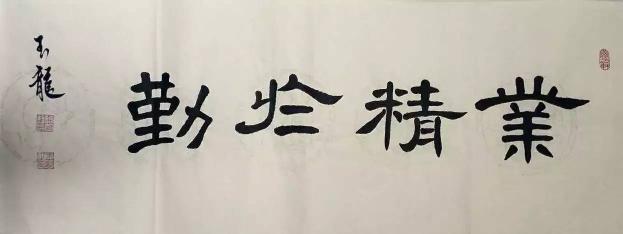 業精於勤
玉龍